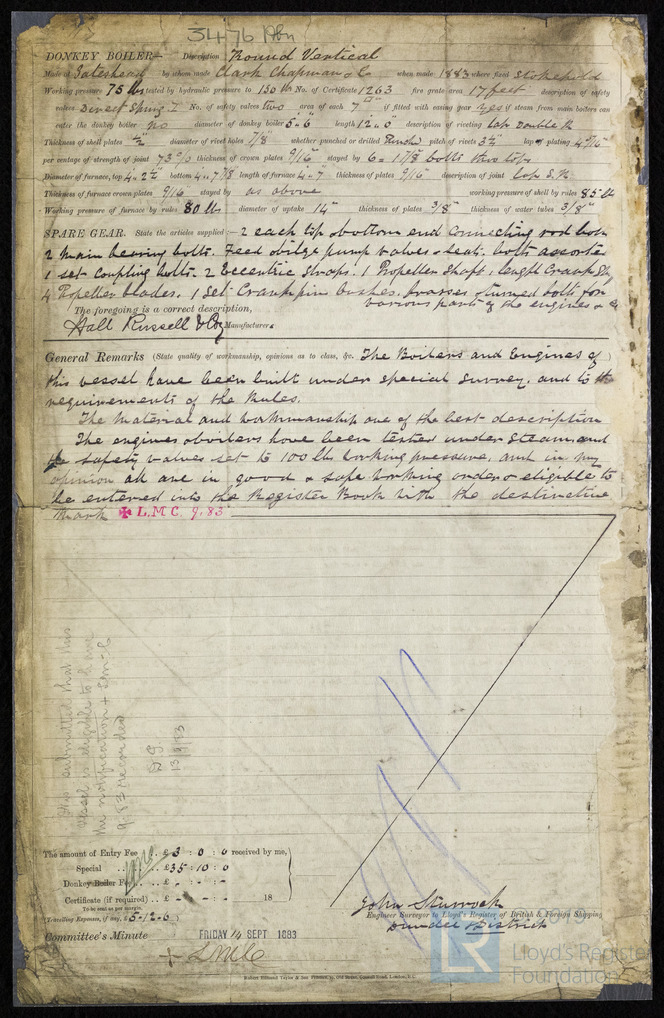 3476 Abn
DONKEY BOILER— Description Round Vertical
Made at Gateshead by whom made Clark Chapman & Co when made 1883 where fixed Stokehold
Working pressure 75 lbs tested by hydraulic pressure to 150 lbs No. of Certificate 1263 fire grate area 17 feet description of safety
valves Direct Spring No. of safety valves two area of each 7 if fitted with easing gear yes if steam from main boilers can
enter the donkey boiler no diameter of donkey boiler 5'6" length 12'0" description of riveting lap Double R
Thickness of shell plates diameter of rivet holes 7/8 whether punched or drilled Punched pitch of rivets lap of plating
per centage of strength of joint 73% thickness of crown plates 9/16 stayed by 6 = 1 7/8 bolts
Diameter of furnace, top 4'2½" bottom 4'7⅞ length of furnace 4'7" thickness of plates 9/16" description of joint lap S.R.
Thickness of furnace crown plates 9/16 stayed by as above working pressure of shell by rules 85 lb
Working pressure of furnace by rules 80 lbs diameter of uptake 14" thickness of plates 3/8" thickness of water tubes 3/8"
SPARE GEAR. State the articles supplied:— 2 each top & bottom end connecting rod bolts
2 Main bearing bolts. Feed & bilge pump valves & seats. bolts assorted
1 set coupling bolts. 2 Eccentric Straps. 1 Propeller Shaft. 1 length Crank Sh
4 Propeller blades. 1 Set Crankpin bushes. brasses & turned bolts for
various parts of the engines &c
The foregoing is a correct description,
Hall Russell & Co Manufacturers
General Remarks (State quality of workmanship, opinions as to class, &c. The Boilers and Engines of
this vessel have been built under special survey. and to the
requirements of the Rules.
The Material and workmanship are of the best description
The engines & boilers have been tested under steam, and
the safety valves set to 100 lb working pressure, and in my
opinion all are in good & safe working order & eligible to
be entered into the Register Book with the distinctive
mark ✠ L.M.C. 9.83
It is submitted that this
vessel is eligible to have
the notification + LMC
9.83 recorded
13/9/83
The amount of Entry Fee .. £ 3 : 0 : 0 received by me,
Special .. £35 : 10 : 0
Donkey Boiler Fee .. £ - : - : -
Certificate (if required) .. £ - : - : - 18
To be sent as per margin.
(Travelling Expenses, if any, £5-12-6)
John Sturrock
Engineer Surveyor to Lloyd's Register of British & Foreign Shipping
Dundee District
Committee's Minute FRIDAY 14 SEPT 1883
+ LMC
LR
Lloyd's Register
Foundation